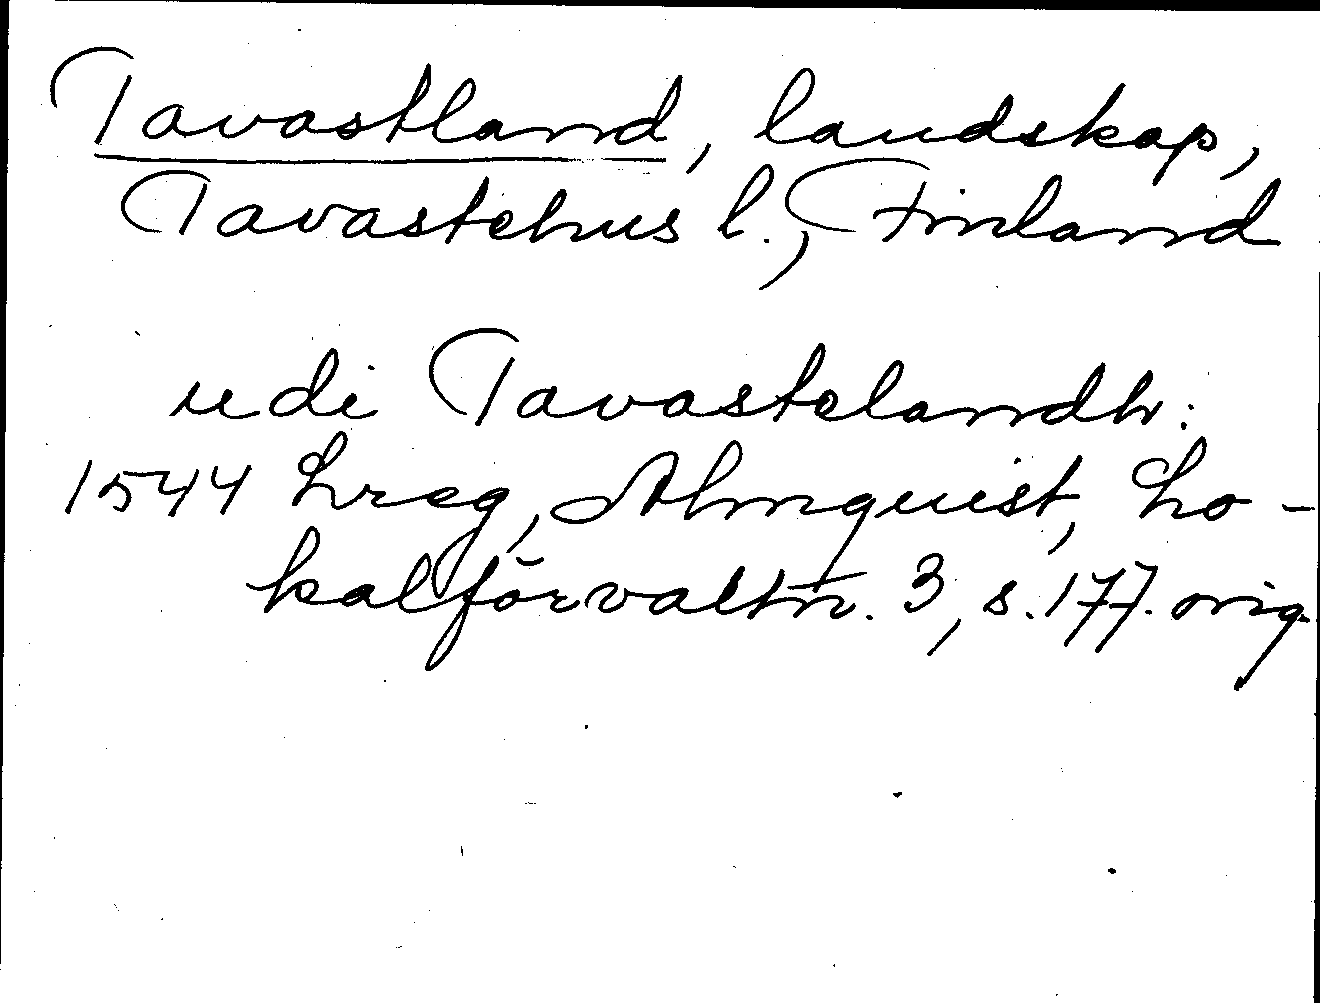 Tavastland, landskap,
Tavastehus l., Finland
udi Tavastelandh:
1544 Lreg, Almquist, Lo-
kalförvaltn. 3, s. 177. orig.